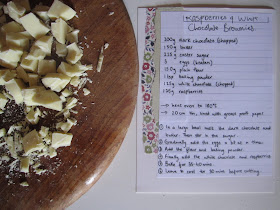 Raspberry & White
Chocolate Brownies
200g dark chocolate (chopped)
150g butter
225g caster sugar
3 eggs (beaten)
150g plain flour
1 tsp baking powder
125g white chocolate (chopped)
175g raspberries
→ heat oven to 180°C
→ 20 cm tin, lined with grease proof paper
① In a large bowl melt the dark chocolate and
butter. Then stir in the sugar.
② Gradually add the eggs a bit at a time.
③ Add the flour and baking powder.
④ Finally add the white chocolate and raspberries
⑤ Bake for 35-40 mins.
⑥ Leave to cool for 30 mins before cutting.